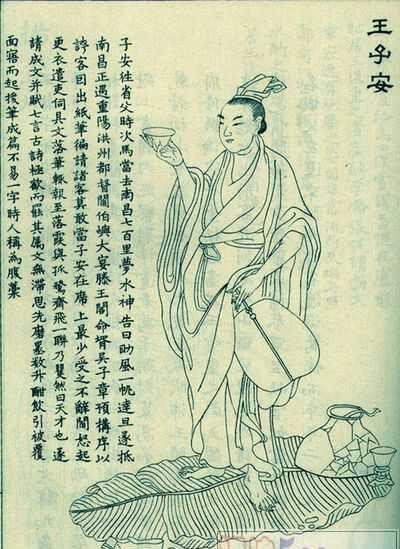 王子安
子安往省父時次馬當去南昌七百里夢水神告曰助風一帆達旦遂抵
南昌正遇重陽洪州都督閻伯嶼大宴滕王閣命壻吳子章預構序以
誇客因出紙筆徧請諸客莫敢當子安在席上最少受之不辭閻怒起
更衣遣吏伺其文落筆輒報至落霞與孤鶩齊飛一聯乃矍然曰天才也遂
請成文并賦七言古詩極歡而罷其属文無滯思先磨墨数升酣飲引被覆
面寤而起援筆成篇不易一字時人稱為腹藁